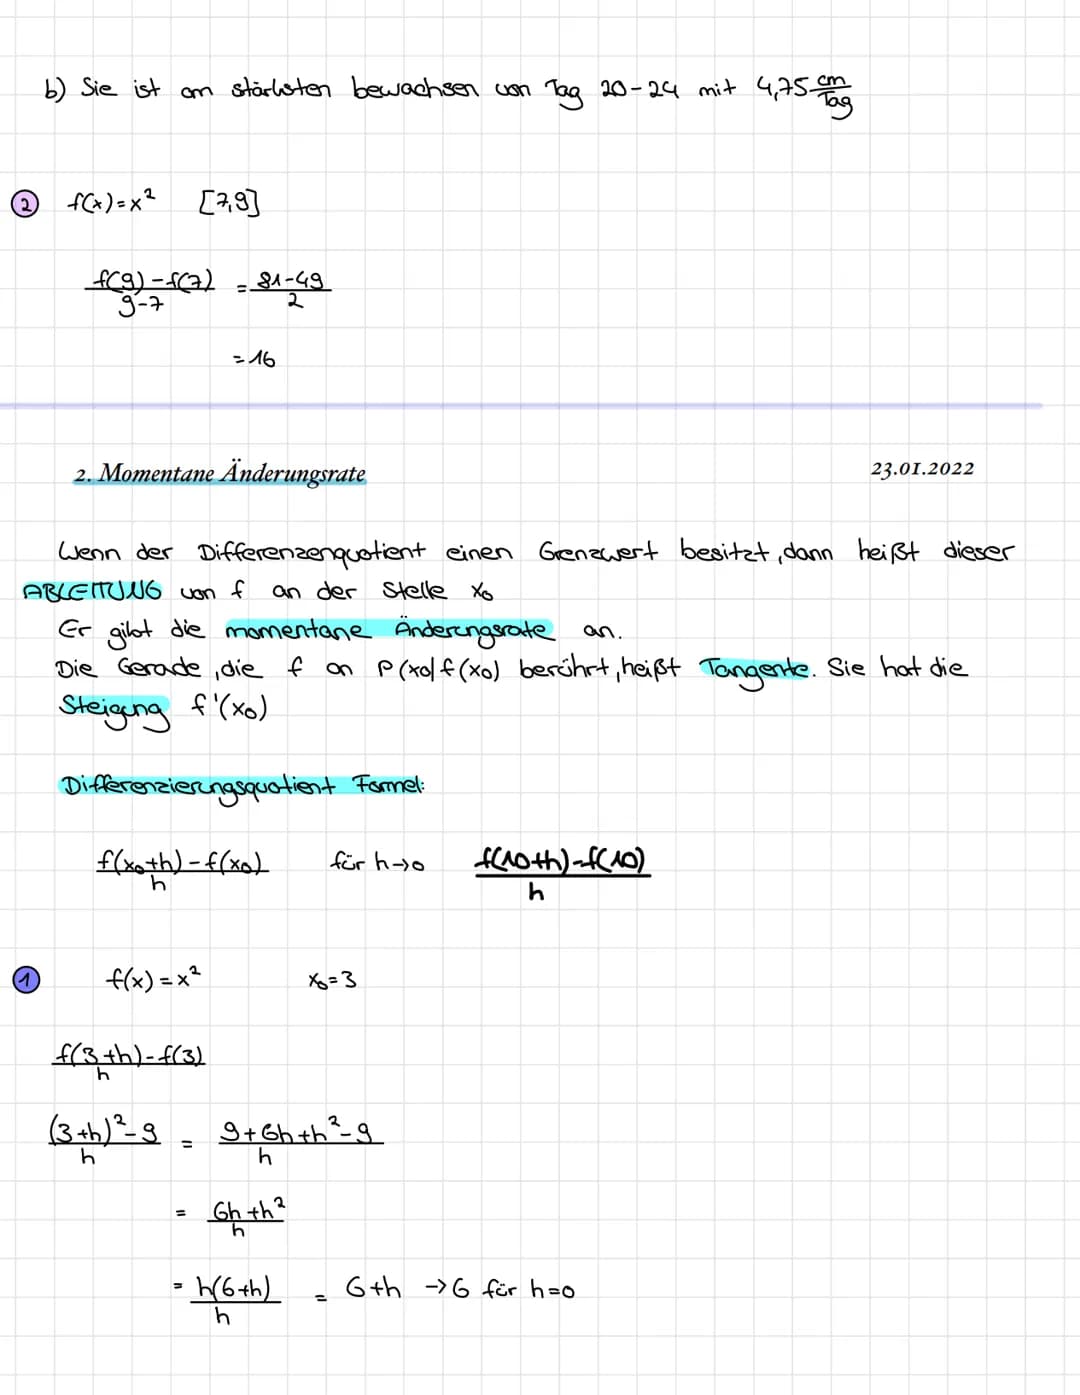 b) Sie ist am stärksten bewachsen von Tag 20-24 mit 4,75 cm/Tag
② f(x)=x² [7,9]
f(9)-f(7) / 9-7 = 81-49 / 2
=16
2. Momentane Änderungsrate 23.01.2022
Wenn der Differenzenquotient einen Grenzwert besitzt, dann heißt dieser
ABLEITUNG von f an der Stelle x₀
Er gibt die momentane Änderungsrate an.
Die Gerade, die f an P(x₀/f(x₀) berührt, heißt Tangente. Sie hat die
Steigung f'(x₀)
Differenzierungsquotient Formel:
f(x₀+h)-f(x₀) / h für h→0 f(10+h)-f(10) / h
① f(x)=x² x₀=3
f(3+h)-f(3) / h
(3+h)²-9 / h = 9+6h+h²-9 / h
= 6h+h² / h
= h(6+h) / h = 6+h →6 für h=0